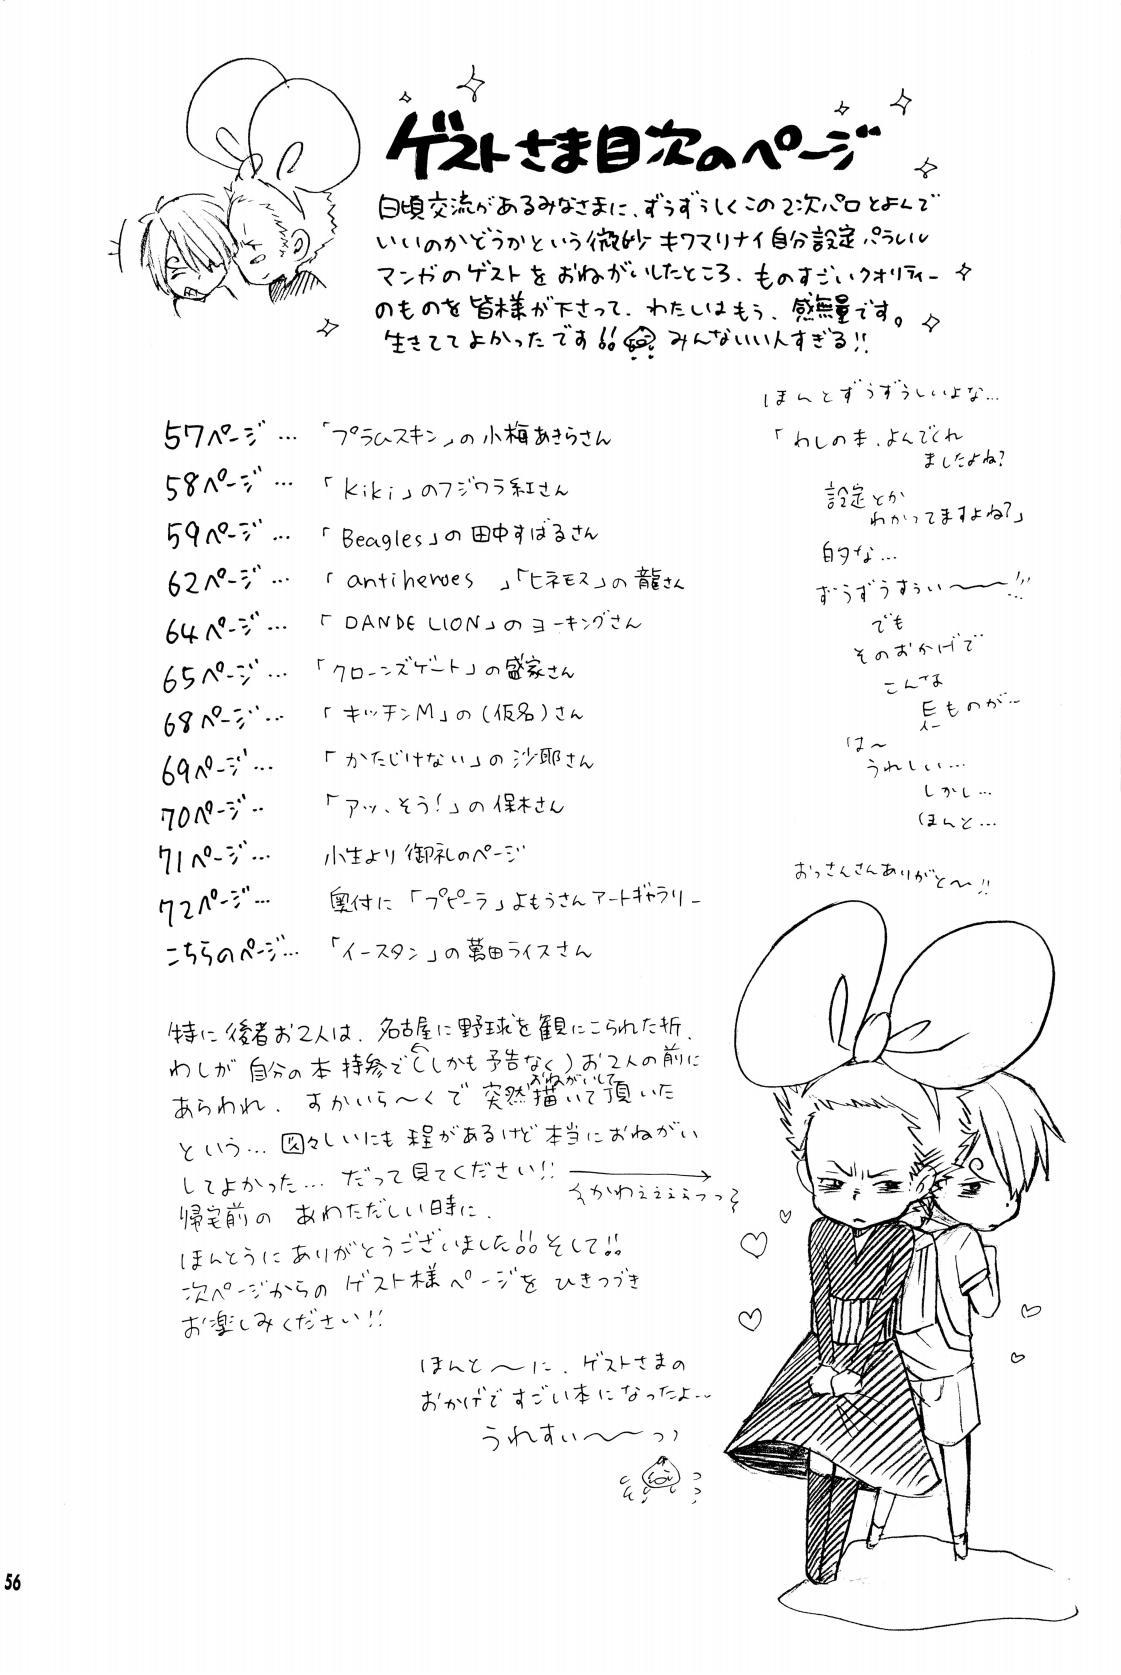 ゲストさま目次のページ
日頃交流があるみなさまに、ずうずうしくこの2次パロとよんで
いいのかどうかという微妙キワマリナイ自分設定パラレル
マンガのゲストをおねがいしたところ、ものすごいクオリティー
のものを皆様が下さって、わたしはもう、感無量です。
生きててよかったです!! みんないい人すぎる!!
57ページ… 「プラムスキン」の小梅あきらさん
58ページ… 「kiki」のフジワラ紅さん
59ページ… 「Beagles」の田中すばるさん
62ページ… 「antiheroes」「ヒネモス」の龍さん
64ページ… 「DANDELION」のヨーキングさん
65ページ… 「クローンズゲート」の盛家さん
68ページ… 「キッチンM」の(仮名)さん
69ページ… 「かたじけない」の沙耶さん
70ページ… 「アッ、そう!」の保木さん
71ページ… 小生より御礼のページ
72ページ… 奥付に「プピーラ」よもうさんアートギャラリー
こちらのページ… 「イースタン」の萬田ライスさん
ほんとずうずうしいよな…
「わしの本、よんでくれ
ましたよね?
設定とか
わかってますよね?」
的な…
ずうずうすぅい〜〜!!!
でも
そのおかげで
こんな
ものが…
は〜
うれしい…
しかし…
ほんと…
おっさんさんありがと〜!!
特に後者お2人は、名古屋に野球を観にこられた折、
わしが自分の本持参で(しかも予告なく)お2人の前に
あらわれ、すかいら〜くで突然おねがいして描いて頂いた
という… 図々しいにも程があるけど本当におねがい
してよかった… だって見てください!!
かわえぇぇぇっっ
帰宅前のあわただしい時に、
ほんとうにありがとうございました!! そして!!
次ページからのゲスト様ページをひきつづき
お楽しみください!!
ほんと〜に、ゲストさまの
おかげですごい本になったよ…
うれすぃ〜〜っっ
56